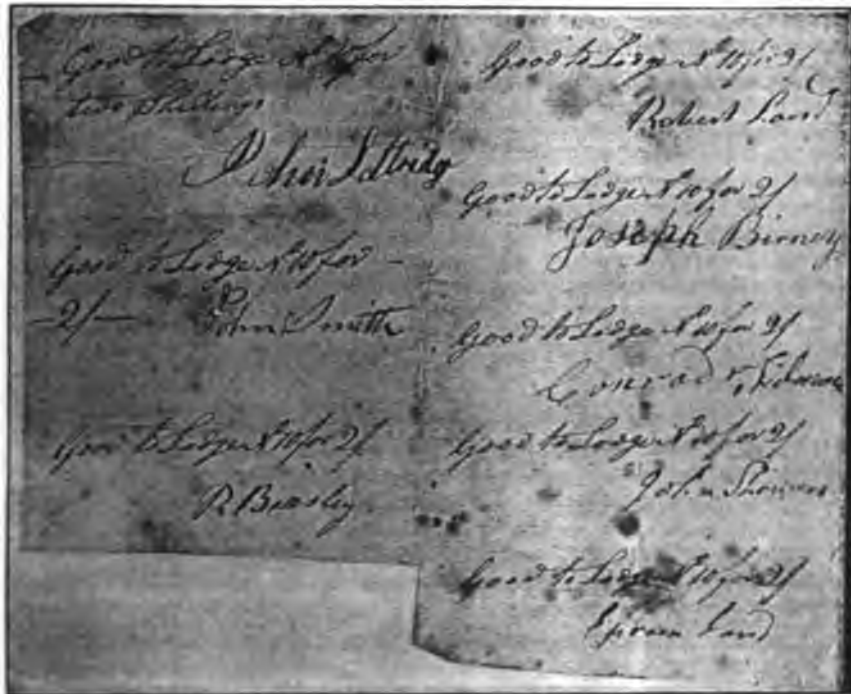 Good to Lodge N 10 for
two Shillings
Good to Lodge N 10 for
2/
John Smith
Good to Lodge N 10 for 2/
R Beasley
Good to Lodge N 10 for 2/
Robert Land
Good to Lodge N 10 for 2/
Joseph Birney
Good to Lodge N 10 for 2/
Conrad
Good to Lodge N 10 for 2/
John
Good to Lodge N 10 for 2/
Ephraim Land